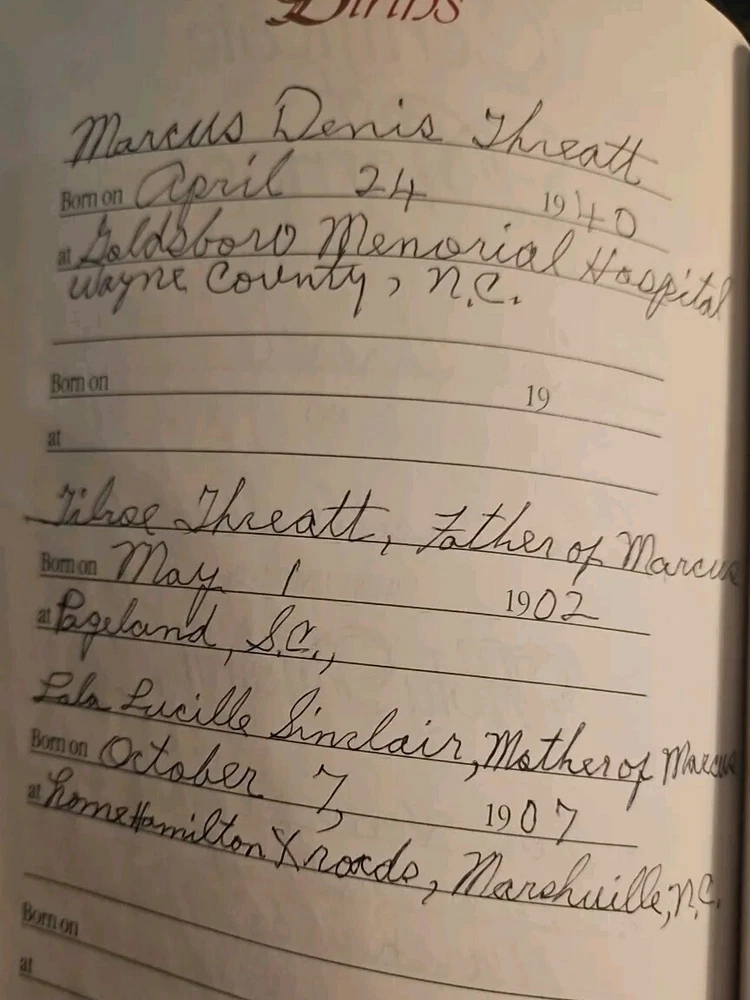 Births
Marcus Denis Threatt
Born on April 24 1940
at Goldsboro Memorial Hospital
Wayne County, N.C.
Born on 19
at
Threatt, Father of Marcus
Born on May 1 1902
at Pageland, S.C.,
Lula Lucille Sinclair, Mother of Marcus
Born on October 7, 1907
at home Hamilton Xroads, Marshville, N.C.
Born on
at